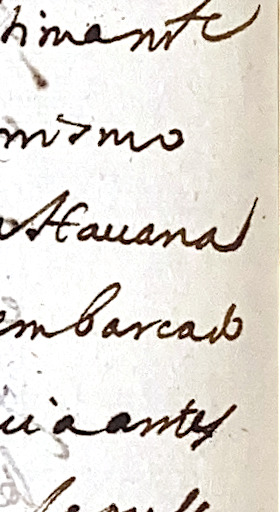 timante
mismo
Hauana
embarcado
uia antes